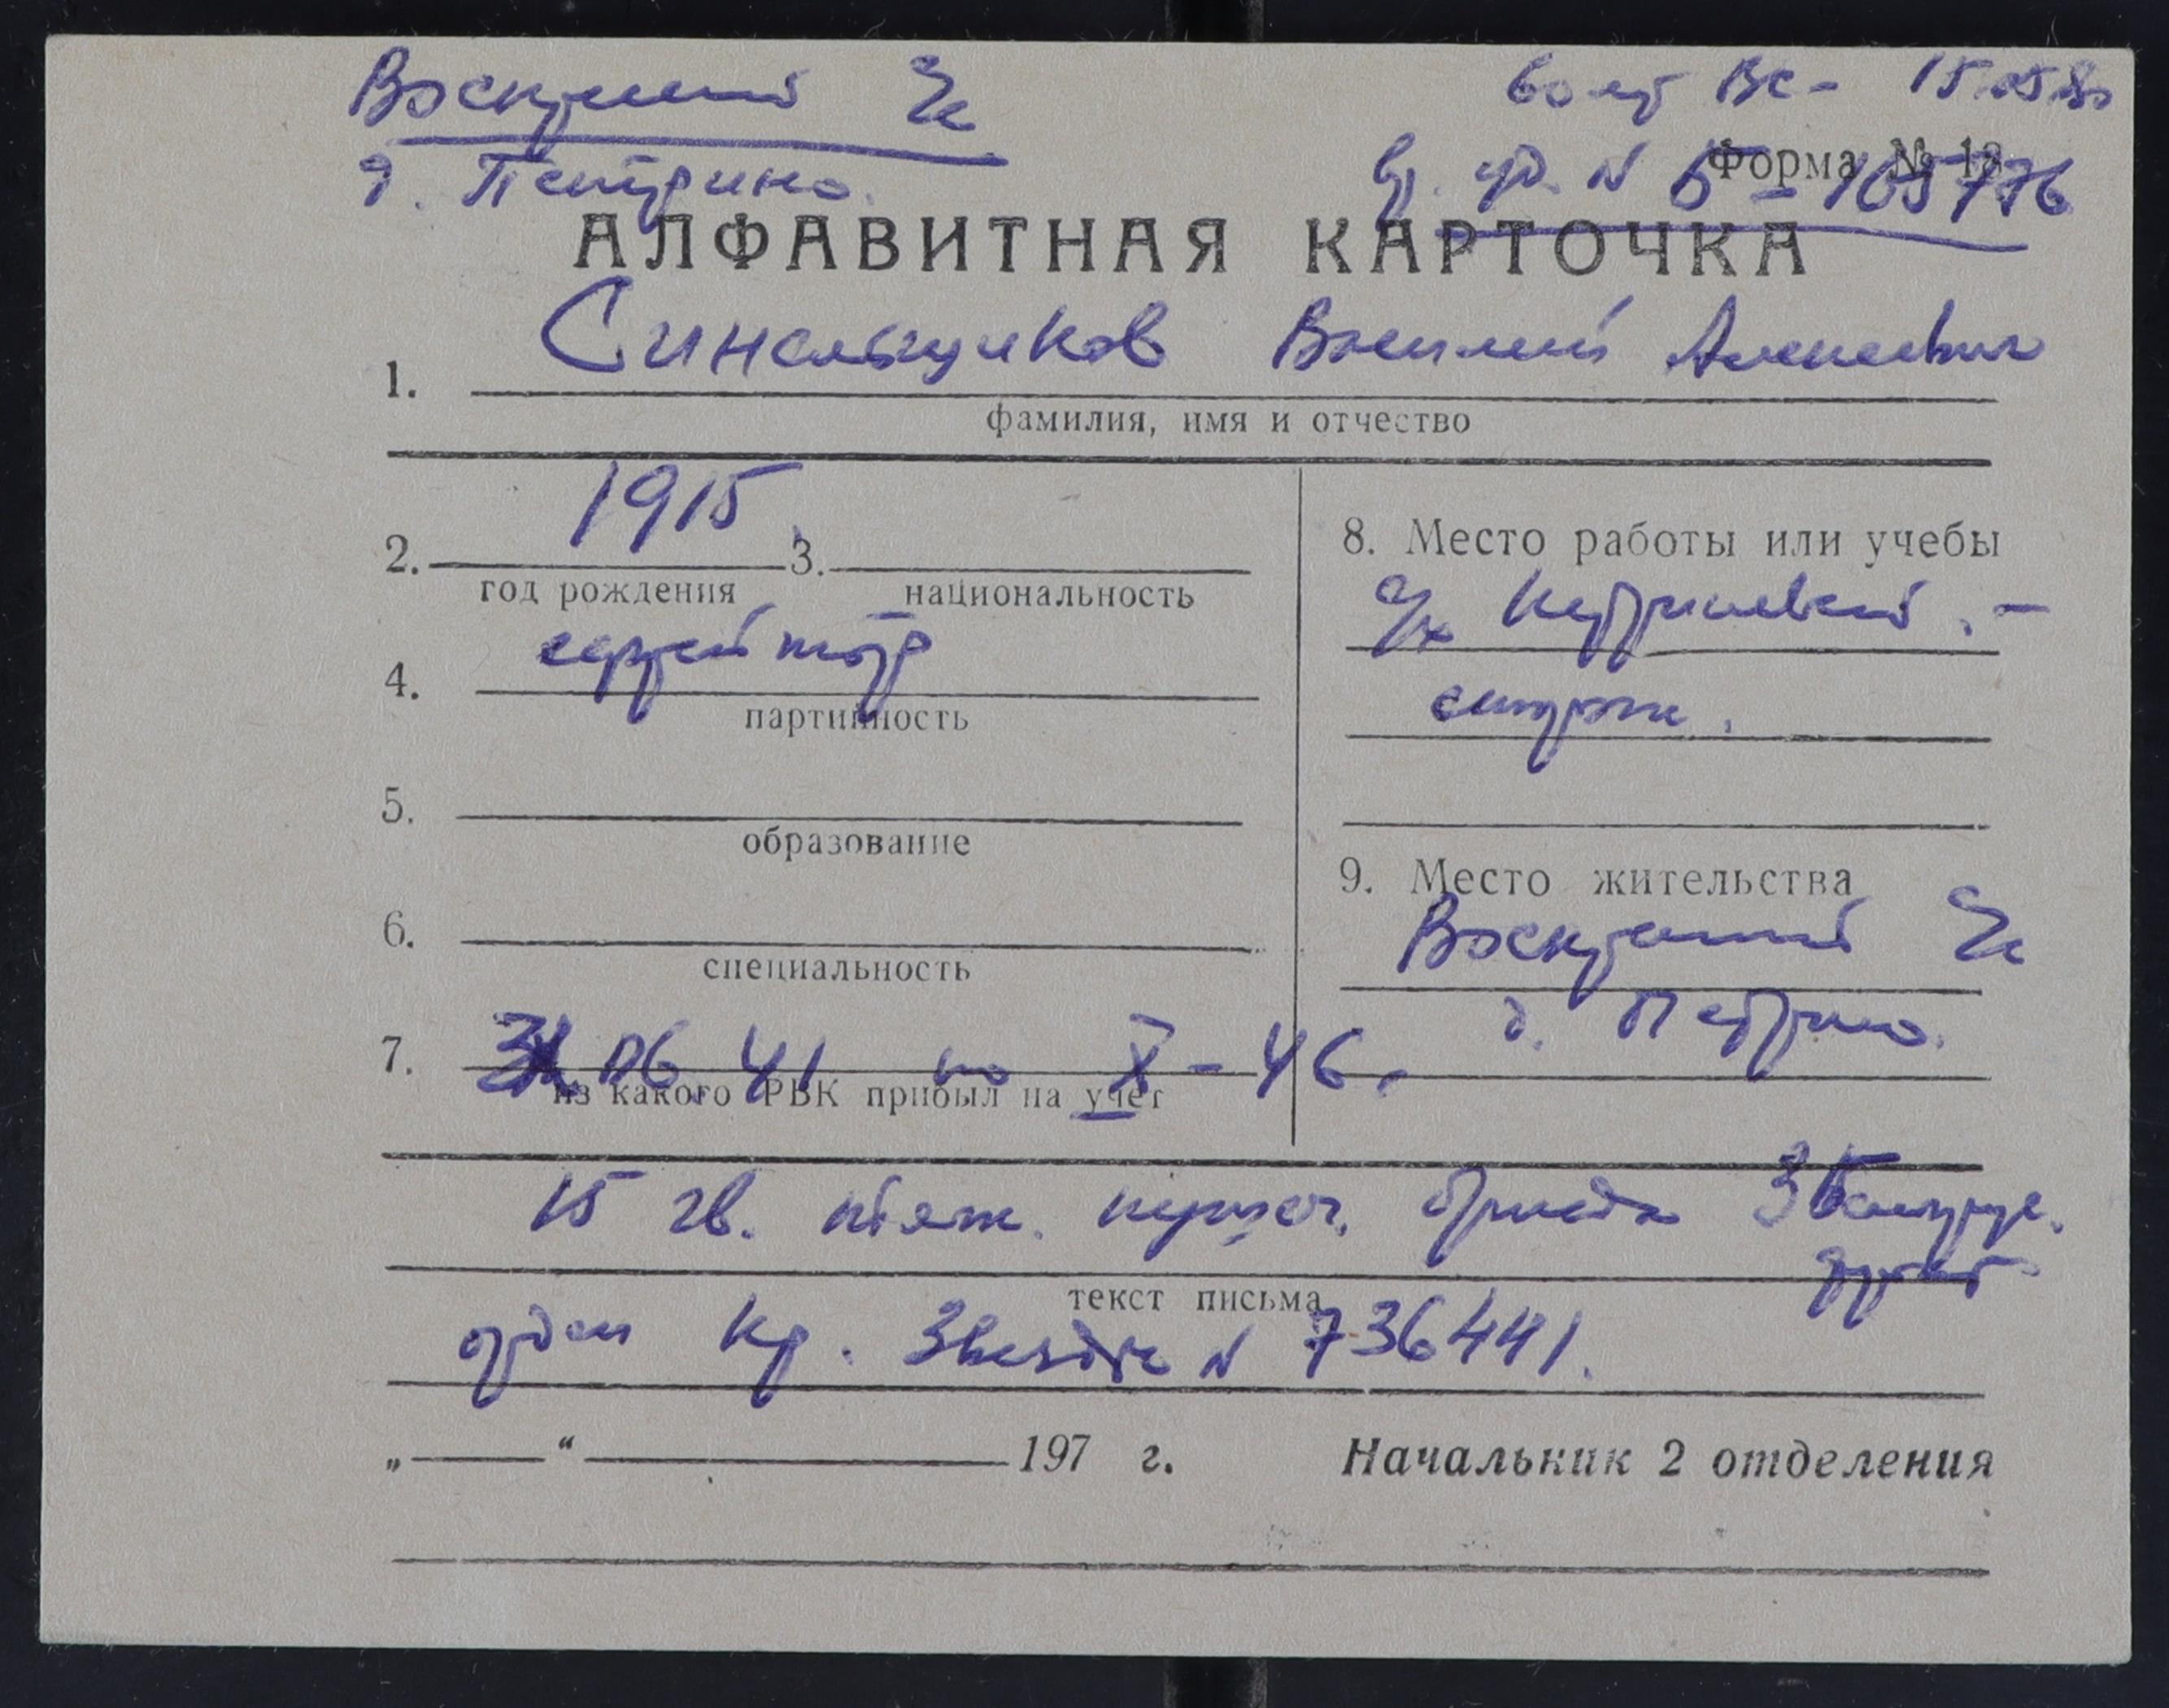 Воскресенский с/с
д. Петрино.
15.05.80
Форма № 13
вр. уд. N Б-105776
АЛФАВИТНАЯ КАРТОЧКА
1. Синельщиков Василий Алексеевич
фамилия, имя и отчество
2. 1915 3.
год рождения национальность
4.
партийность
5.
образование
6.
специальность
7. 06 41 по X-46.
из какого РВК прибыл на учет
8. Место работы или учебы
с/х
сторож.
9. Место жительства
Воскресенский с/с
д. Петрино.
15 гв. тяж. пушеч. бригада 3 Белорус.
фронт
текст письма
орден Кр. Звезды N 736441.
„ “ 197 г. Начальник 2 отделения